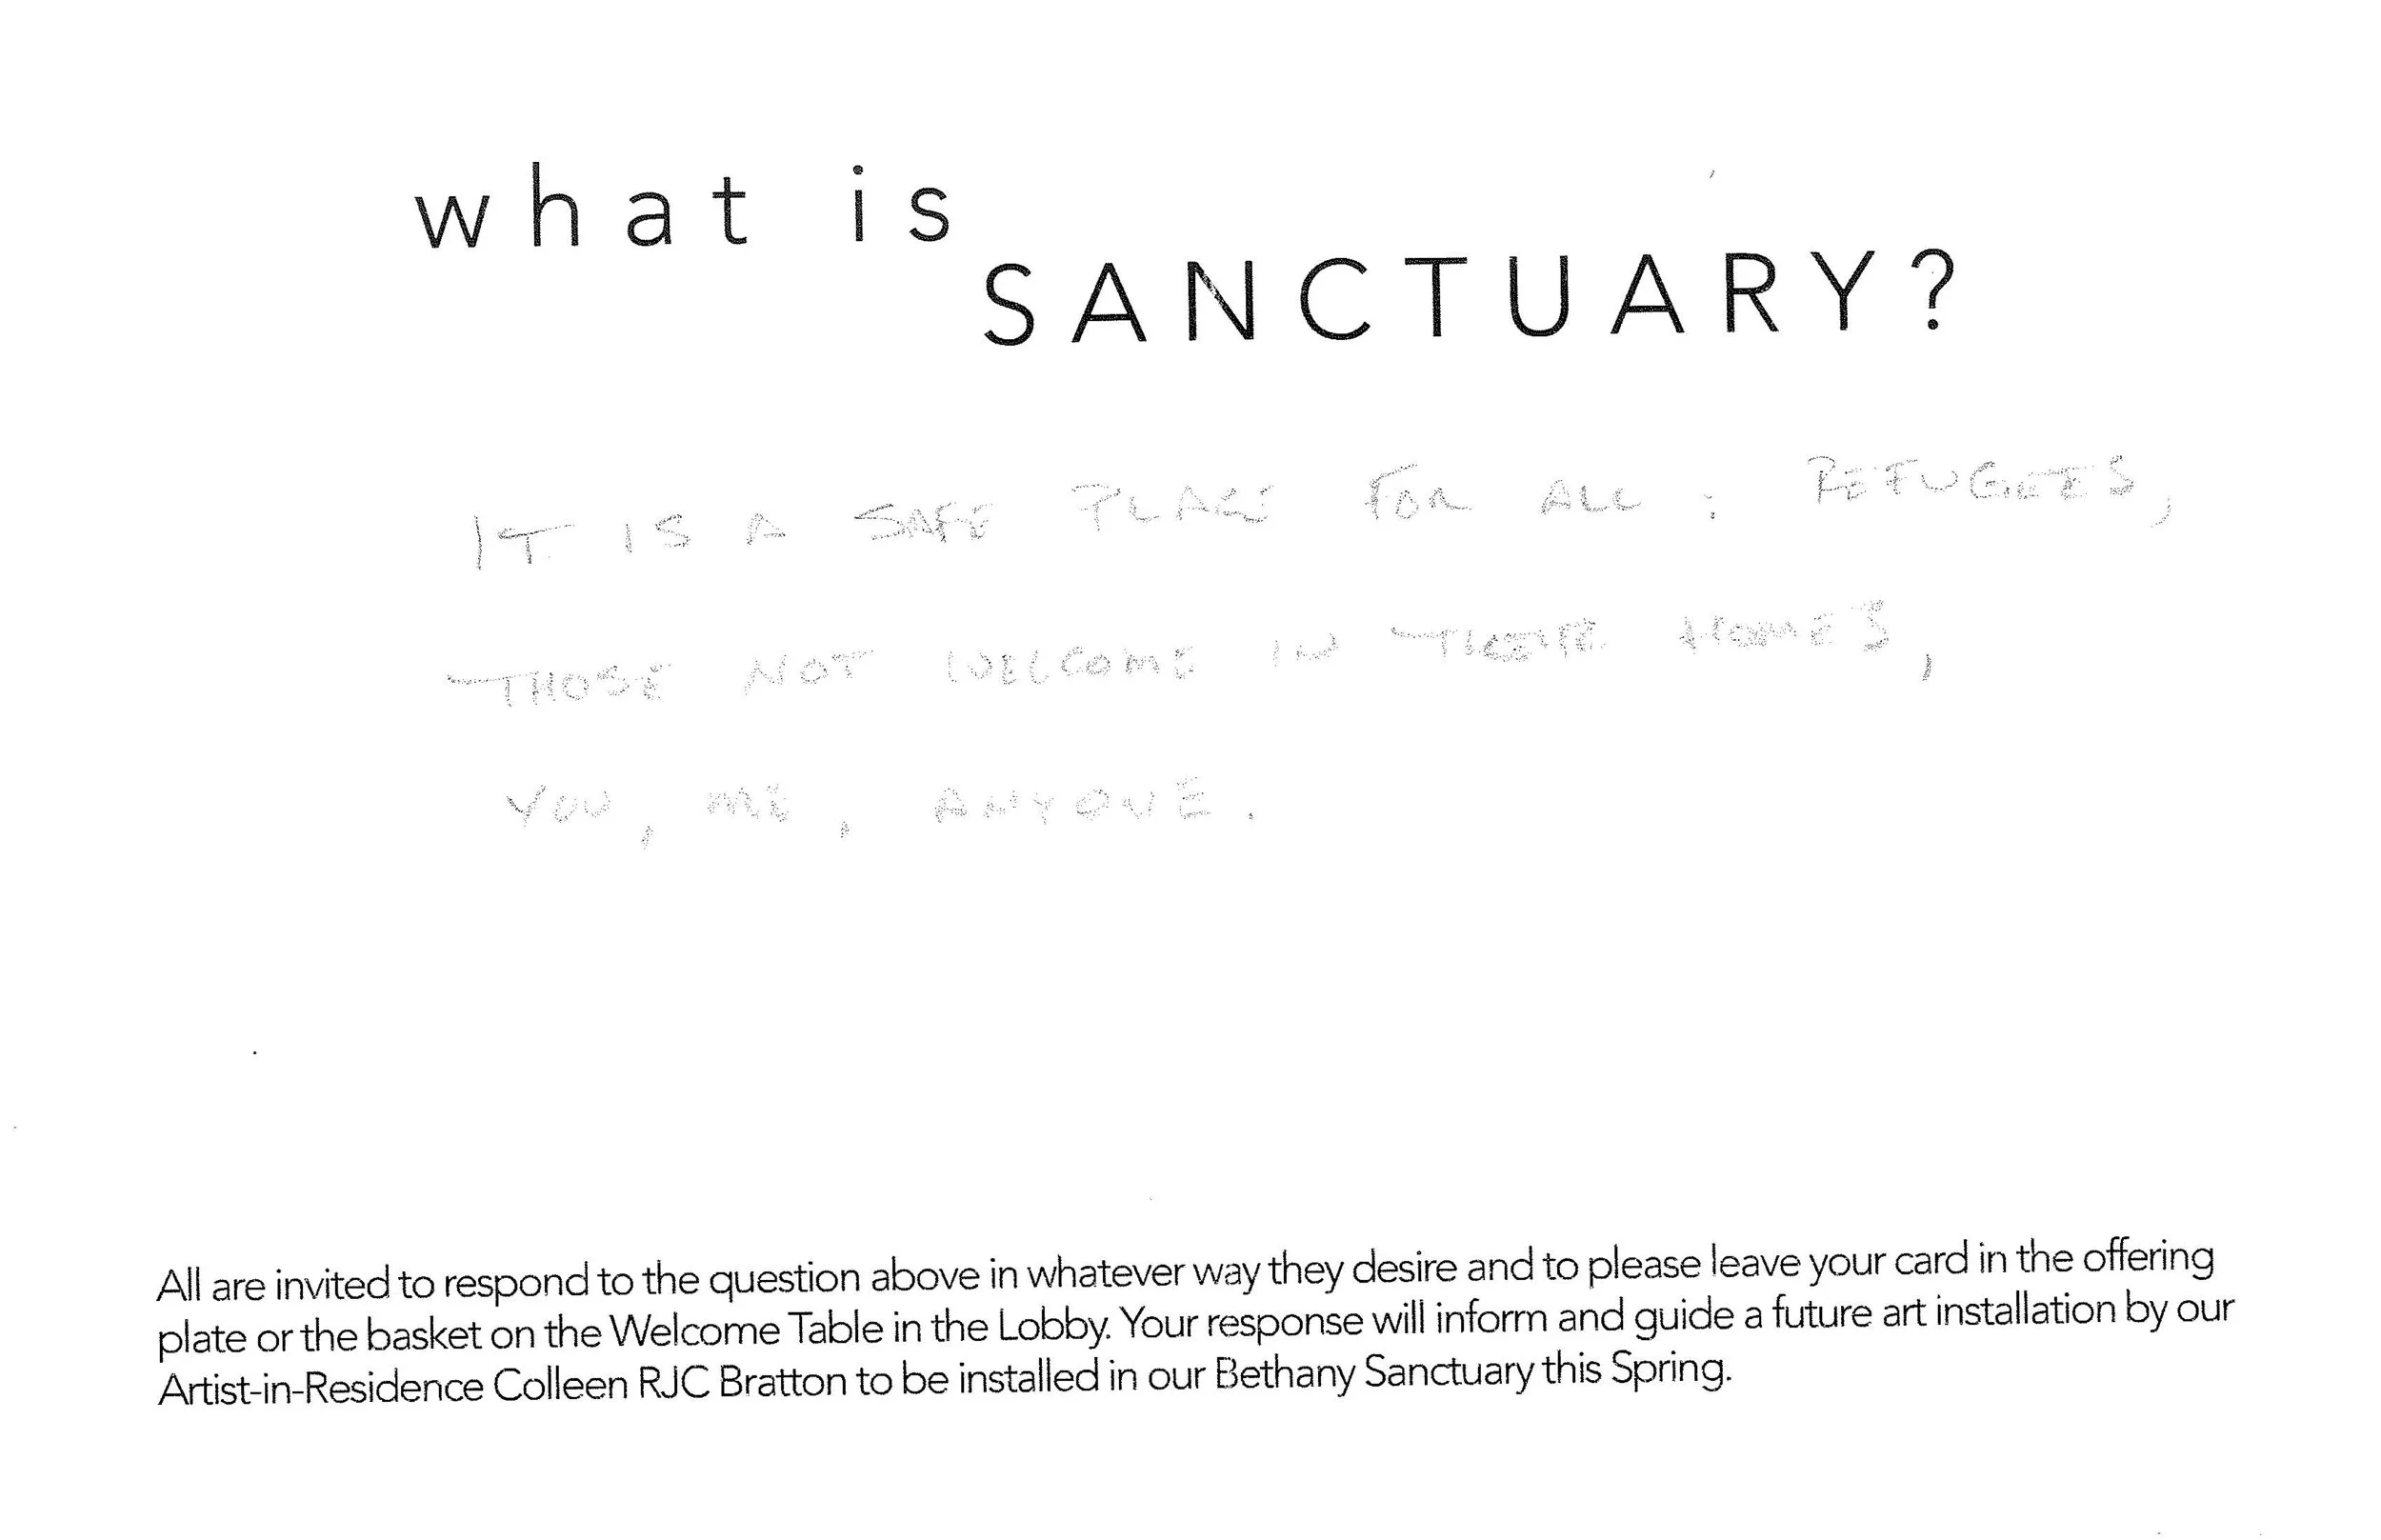 what is
SANCTUARY?
IT IS A SAFE PLACE FOR ALL : REFUGEES,
THOSE NOT WELCOME IN THEIR HOMES,
YOU, ME, ANYONE.
All are invited to respond to the question above in whatever way they desire and to please leave your card in the offering
plate or the basket on the Welcome Table in the Lobby. Your response will inform and guide a future art installation by our
Artist-in-Residence Colleen RJC Bratton to be installed in our Bethany Sanctuary this Spring.